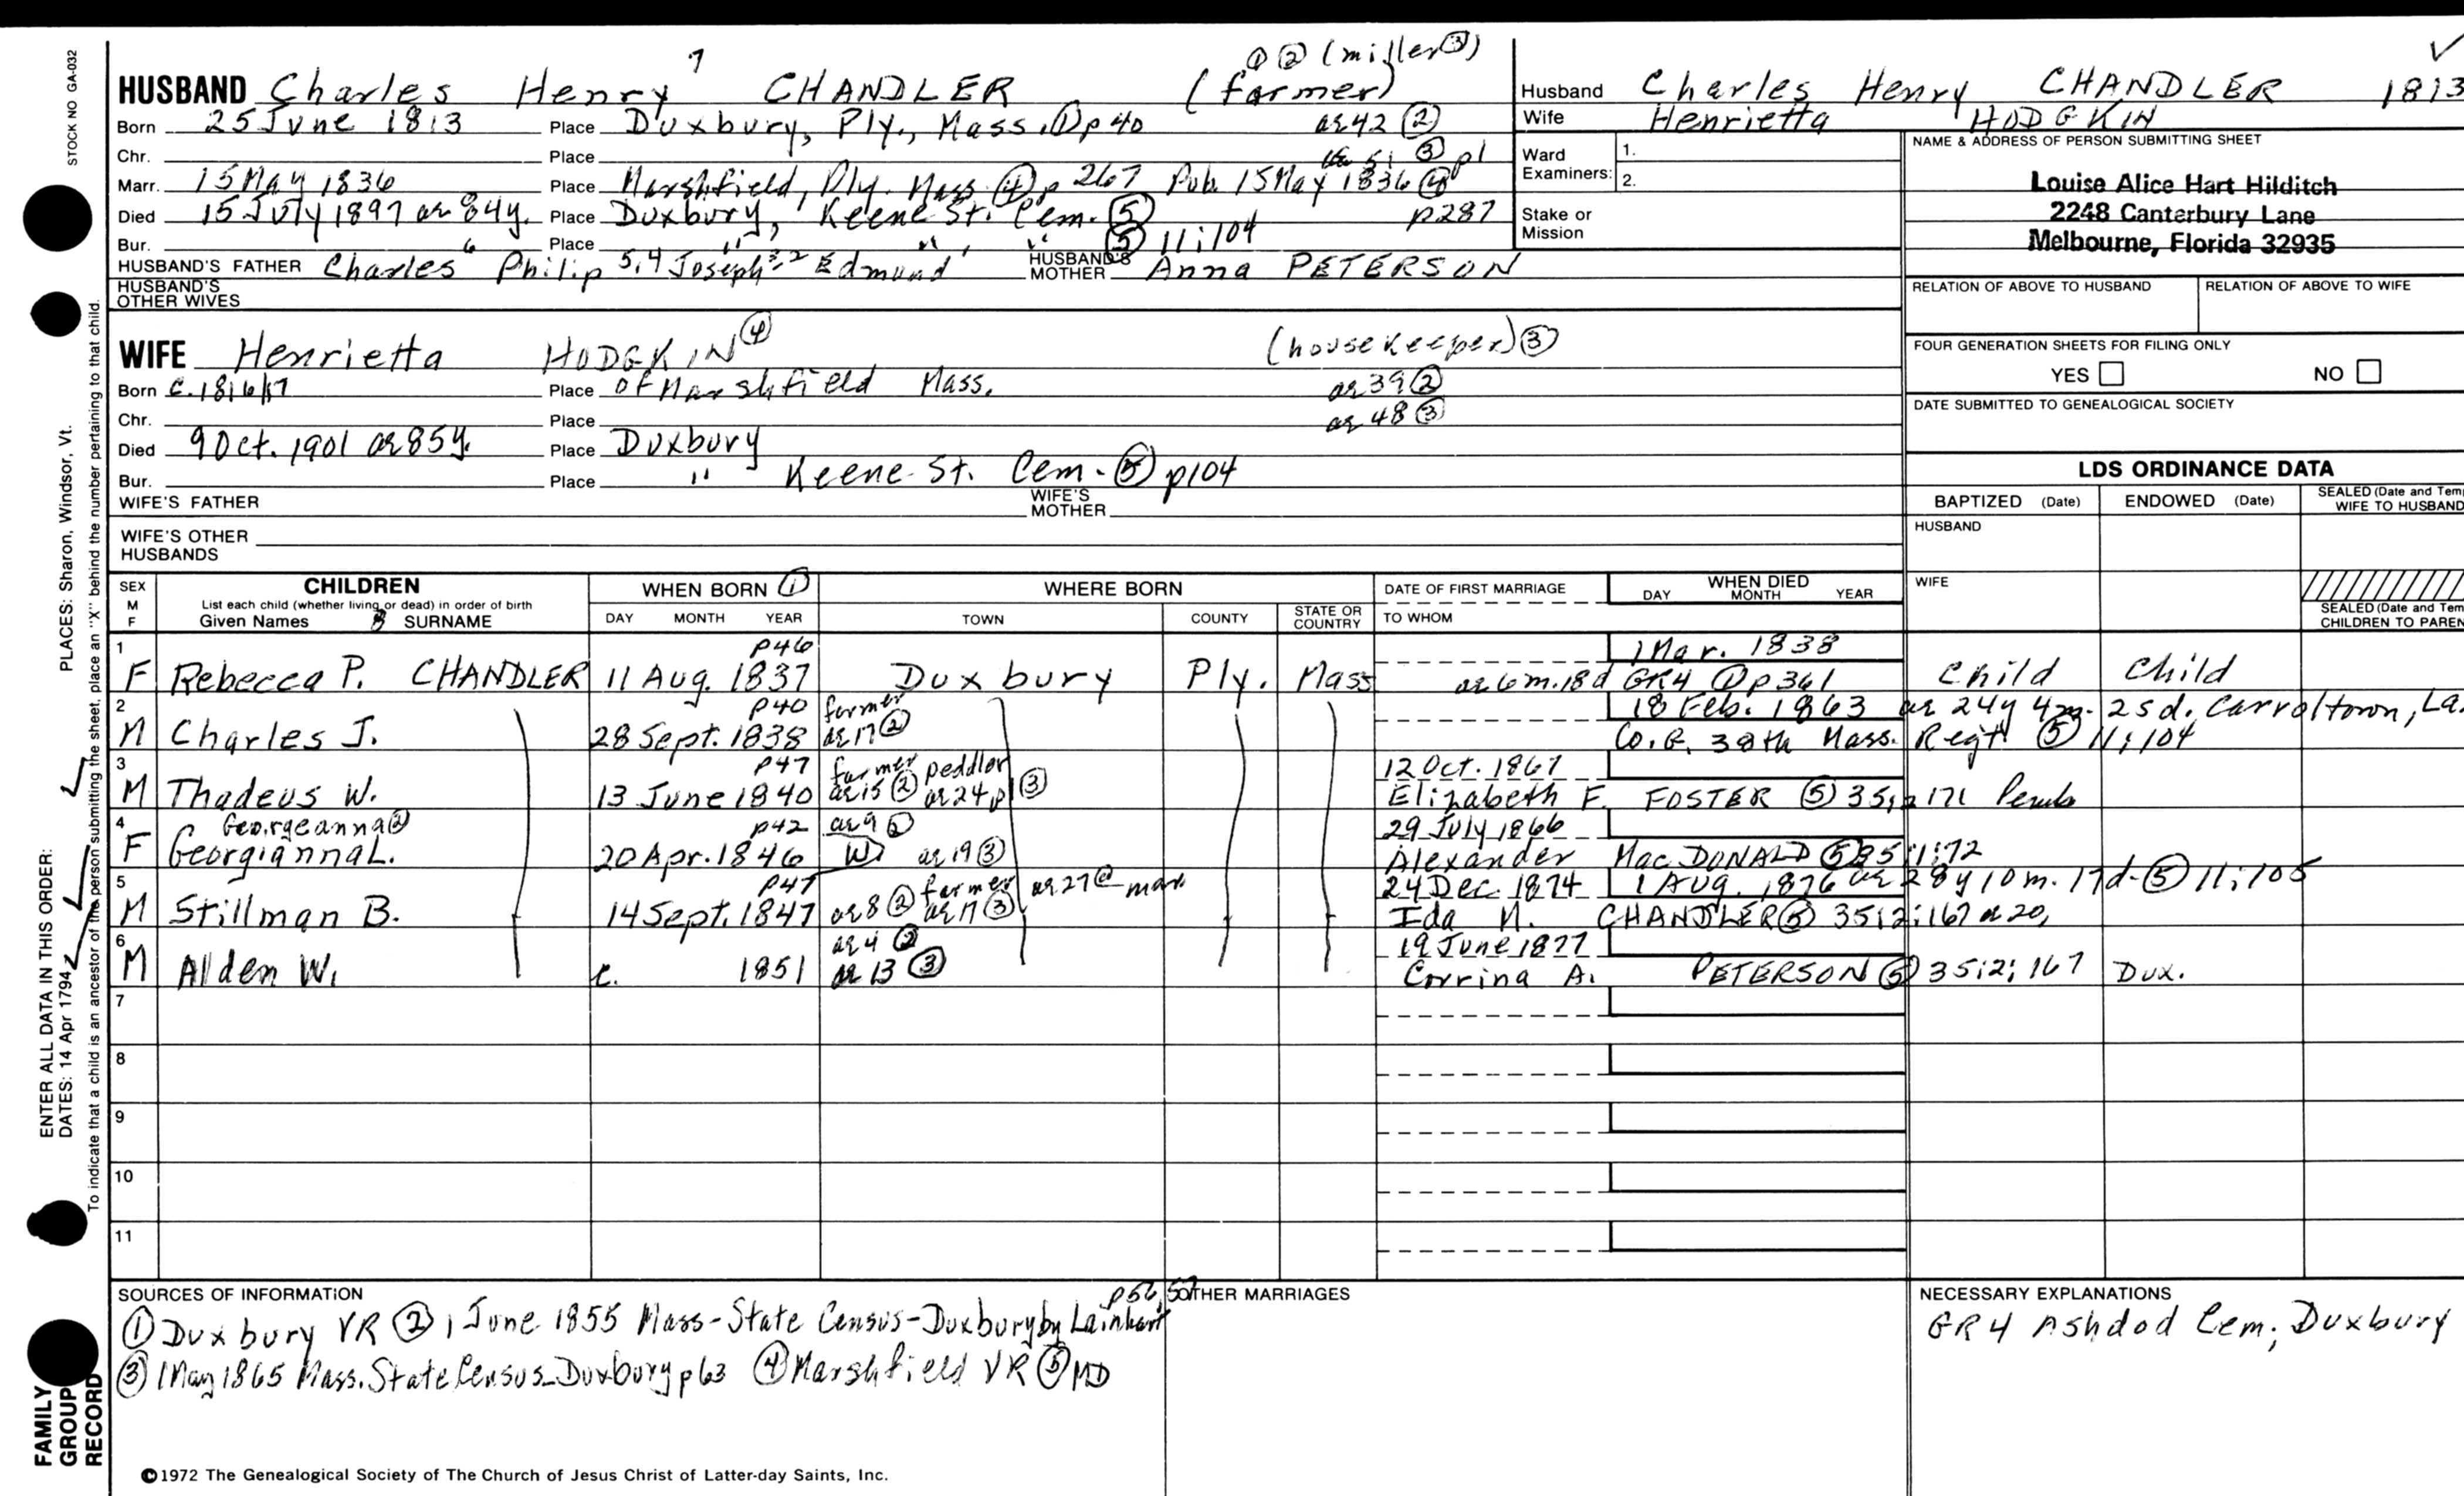 STOCK NO GA-032
PLACES: Sharon, Windsor, Vt.
ENTER ALL DATA IN THIS ORDER:
DATES: 14 Apr 1794
To indicate that a child is an ancestor of the person submitting the sheet, place an "X" behind the number pertaining to that child.
FAMILY GROUP RECORD
① ② (miller③)
HUSBAND Charles Henry 7 CHANDLER (farmer)
Born 25 June 1813 Place Duxbury, Ply., Mass. ① p 40 ae 42 ②
Chr. Place ae 51 ③ p1
Marr. 15 May 1836 Place Marshfield, Ply. Mass ④ p 267 Pub. 15 May 1836 ④
Died 15 July 1897 ae 84y. Place Duxbury, Keene St. Cem. ⑤ p287
Bur. Place " " , " ⑤ 11:104
HUSBAND'S FATHER Charles 6 Philip 5,4 Joseph 3,2 Edmund 1 HUSBAND'S MOTHER Anna PETERSON
HUSBAND'S OTHER WIVES
WIFE Henrietta HODGKIN ④ (housekeeper) ③
Born c. 1816/17 Place of Marshfield Mass. ae 39 ②
Chr. Place ae 48 ③
Died 9 Oct. 1901 ae 85y. Place Duxbury
Bur. Place " Keene St. Cem. ⑤ p104
WIFE'S FATHER WIFE'S MOTHER
WIFE'S OTHER HUSBANDS
Husband Charles Henry CHANDLER 1813
Wife Henrietta HODGKIN
Ward Examiners: 1.
2.
Stake or Mission
NAME & ADDRESS OF PERSON SUBMITTING SHEET
Louise Alice Hart Hilditch
2248 Canterbury Lane
Melbourne, Florida 32935
RELATION OF ABOVE TO HUSBAND RELATION OF ABOVE TO WIFE
FOUR GENERATION SHEETS FOR FILING ONLY
YES NO
DATE SUBMITTED TO GENEALOGICAL SOCIETY
LDS ORDINANCE DATA
BAPTIZED (Date) ENDOWED (Date) SEALED (Date and Tem
WIFE TO HUSBAND
HUSBAND
WIFE
SEALED (Date and Tem
CHILDREN TO PAREN
SEX M F CHILDREN WHEN BORN ① WHERE BORN DATE OF FIRST MARRIAGE WHEN DIED
List each child (whether living or dead) in order of birth
Given Names SURNAME DAY MONTH YEAR TOWN COUNTY STATE OR COUNTRY TO WHOM DAY MONTH YEAR
1 p46 1 Mar. 1838
F Rebecca P. CHANDLER 11 Aug. 1837 Duxbury Ply. Mass ae 6m. 18d GR4 ① p 361 Child Child
2 p40 farmer 18 Feb. 1863 ae 24y 4m. 25d. Carrolltown, La.
M Charles J. 28 Sept. 1838 ae 17 ② Co. E. 38th Mass. Regt. ⑤ 11:104
3 p47 farmer peddler 12 Oct. 1867
M Thadeus W. 13 June 1840 ae 15 ② ae 24 p1 ③ Elizabeth F. FOSTER ⑤ 35:2 171 Pemb
4 Georgeanna ② p42 ae 9 ② 29 July 1866
F Georgianna L. 20 Apr. 1846 ae 19 ③ Alexander MacDONALD ⑤ 35:1:72
5 p47 farmer ae 27 @ mar. 24 Dec. 1874 1 Aug. 1876 ae 28y 10m. 17d. ⑤ 11:105
M Stillman B. 14 Sept. 1847 ae 8 ② ae 17 ③ Ida M. CHANDLER ⑤ 35:2:167 ae 20,
6 ae 4 ② 19 June 1877
M Alden W. c. 1851 ae 13 ③ Corrina A. PETERSON ⑤ 35:2:167 Dux.
7
8
9
10
11
SOURCES OF INFORMATION p56, 57 OTHER MARRIAGES
① Duxbury VR ② 1 June 1855 Mass-State Census-Duxbury by Lainhart
③ 1 May 1865 Mass. State Census Duxbury p63 ④ Marshfield VR ⑤ MD
NECESSARY EXPLANATIONS
GR4 Ashdod Cem; Duxbury
©1972 The Genealogical Society of The Church of Jesus Christ of Latter-day Saints, Inc.